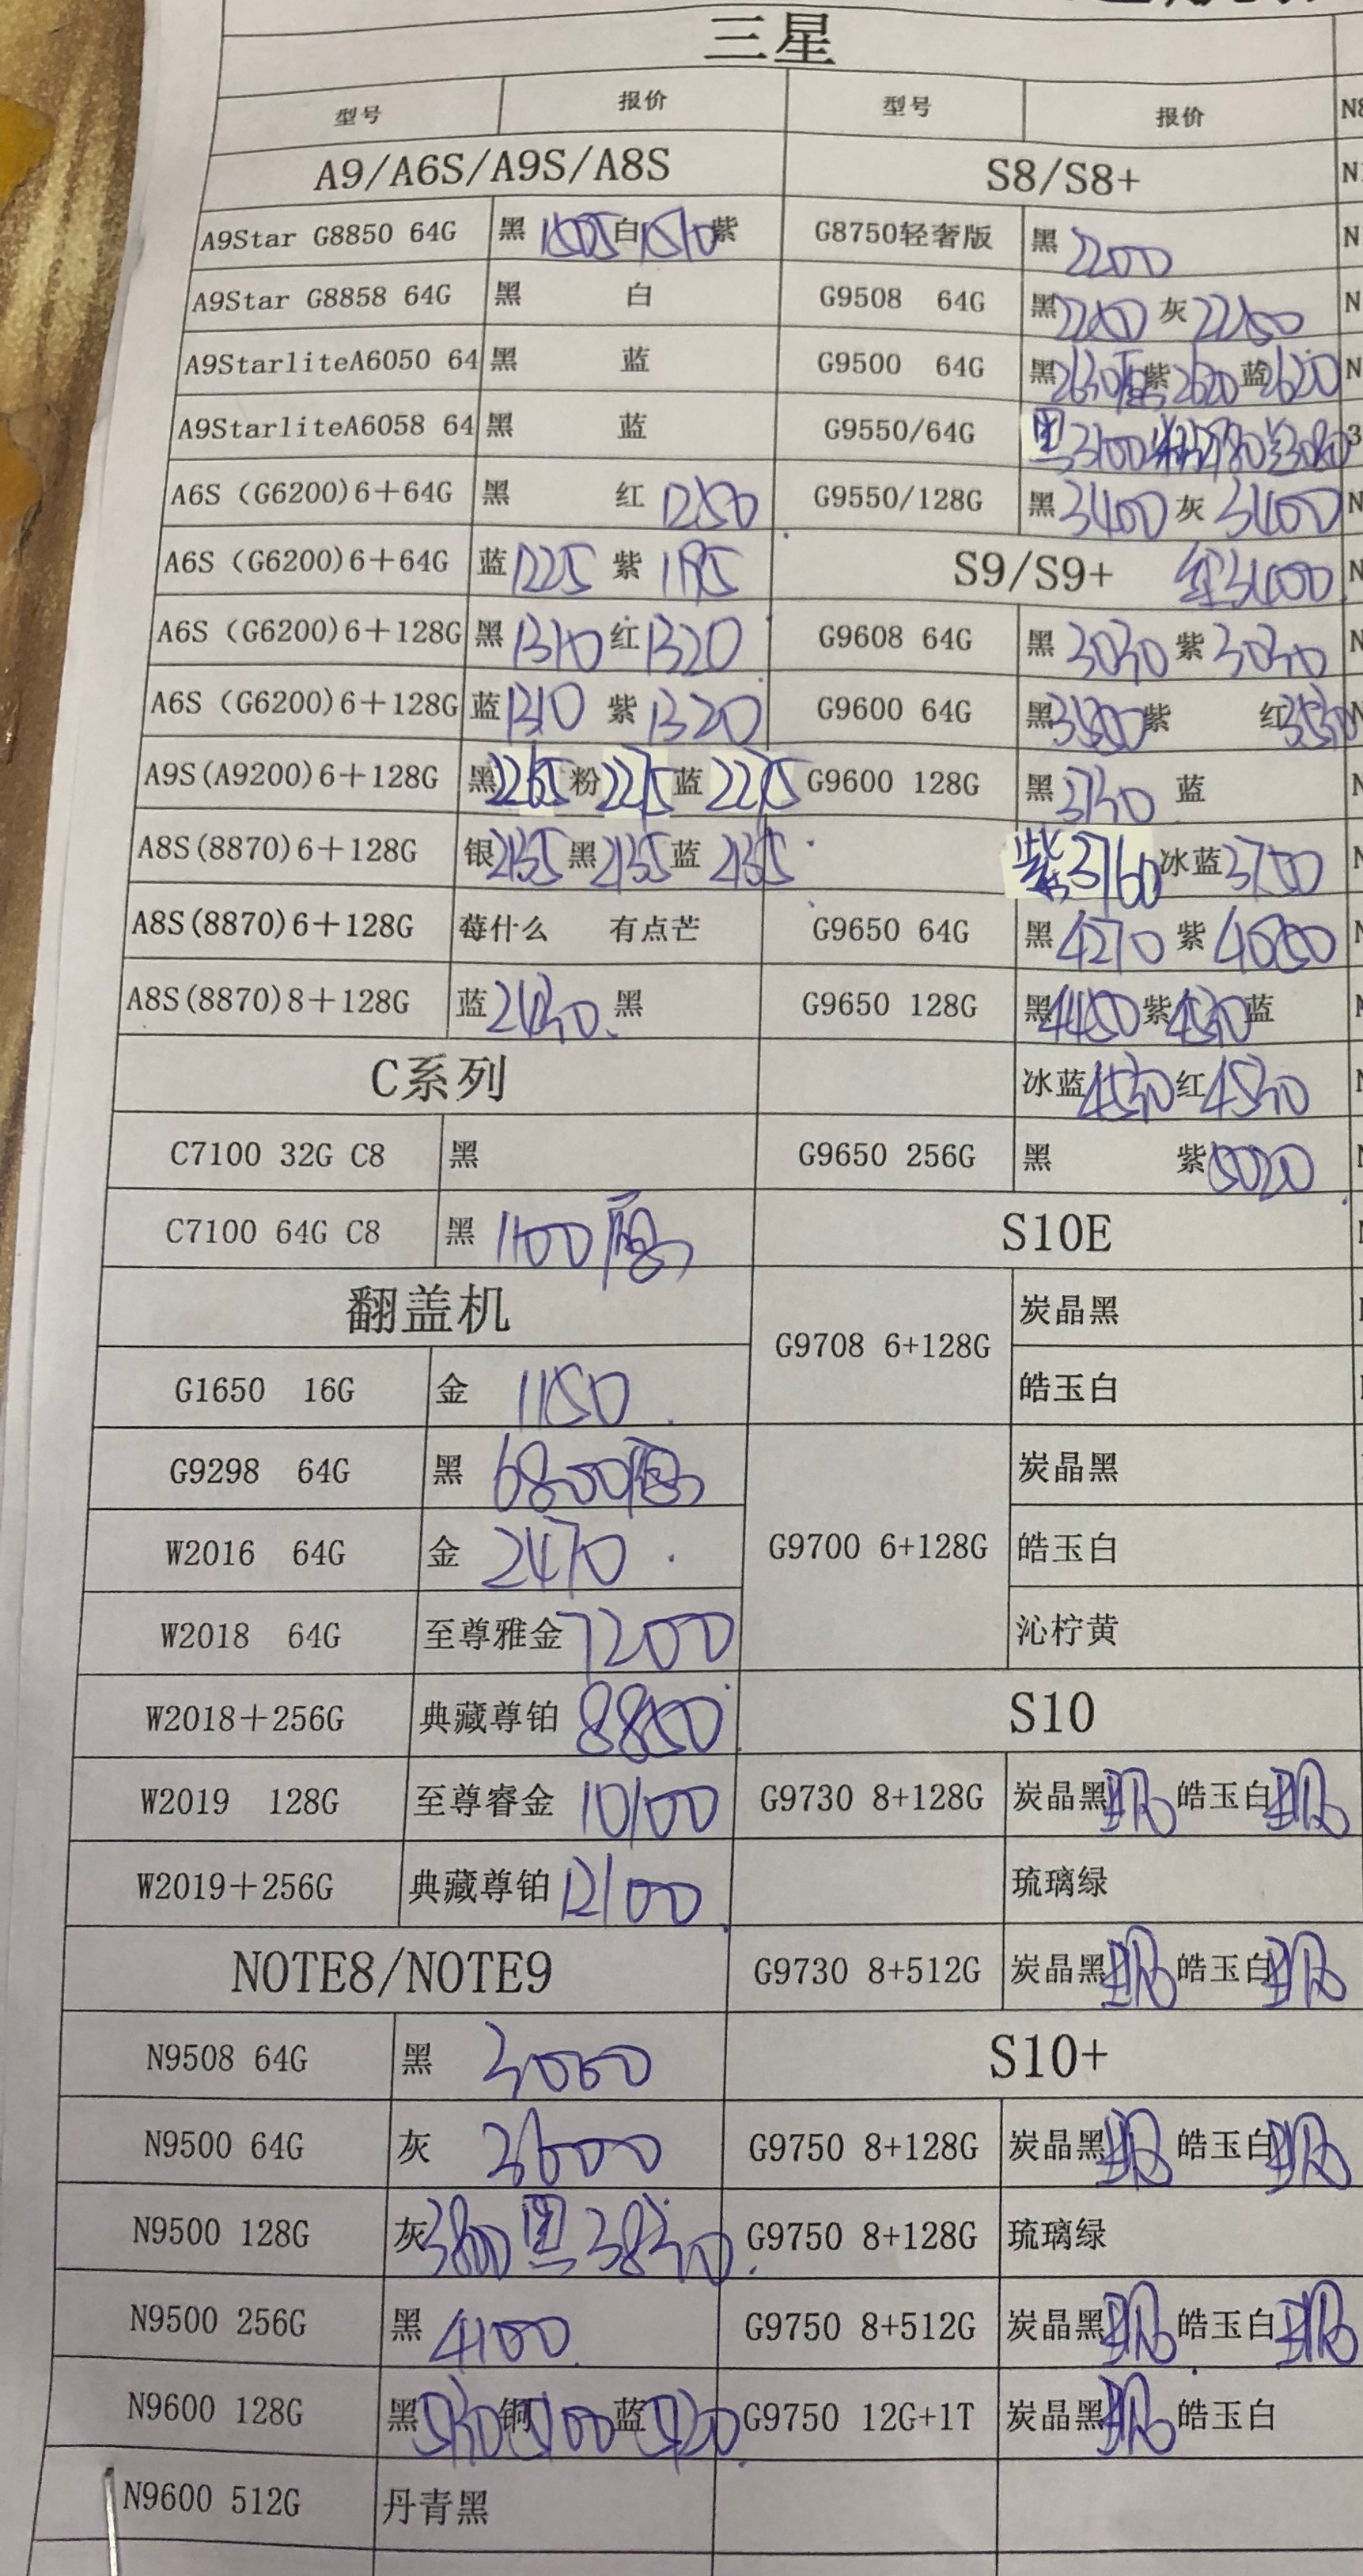 三星
型号 报价 型号 报价
A9/A6S/A9S/A8S S8/S8+
A9Star G8850 64G 黑 1505 白 1510 紫 G8750轻奢版 黑 2200
A9Star G8858 64G 黑 白 G9508 64G 黑 灰
A9StarliteA6050 64 黑 蓝 G9500 64G 黑 2630 紫 2620 蓝 2620
A9StarliteA6058 64 黑 蓝 G9550/64G 黑 3100
A6S (G6200)6+64G 黑 红 1250 G9550/128G 黑 3400 灰 3400
A6S (G6200)6+64G 蓝 1225 紫 1195 S9/S9+ 红3400
A6S (G6200)6+128G 黑 1310 红 1320 G9608 64G 黑 3030 紫 3030
A6S (G6200)6+128G 蓝 1310 紫 1320 G9600 64G 黑 3500 紫 红
A9S(A9200)6+128G 黑 2265 粉 2275 蓝 2275 G9600 128G 黑 3730 蓝
A8S(8870)6+128G 银 2135 黑 2135 蓝 2135 紫3760 冰蓝 3700
A8S(8870)6+128G 莓什么 有点芒 G9650 64G 黑 4270 紫
A8S(8870)8+128G 蓝 2430 黑 G9650 128G 黑 4450 紫 4530 蓝
C系列 冰蓝 4530 红 4530
C7100 32G C8 黑 G9650 256G 黑 紫 5020
C7100 64G C8 黑 1100 S10E
翻盖机 G9708 6+128G 炭晶黑
G1650 16G 金 1150 皓玉白
G9298 64G 黑 6800 炭晶黑
W2016 64G 金 2470 G9700 6+128G 皓玉白
W2018 64G 至尊雅金 7200 沁柠黄
W2018+256G 典藏尊铂 8850 S10
W2019 128G 至尊睿金 10100 G9730 8+128G 炭晶黑 皓玉白
W2019+256G 典藏尊铂 12100 琉璃绿
NOTE8/NOTE9 G9730 8+512G 炭晶黑 皓玉白
N9508 64G 黑 3000 S10+
N9500 64G 灰 3600 G9750 8+128G 炭晶黑 皓玉白
N9500 128G 灰 3800 黑 3830 G9750 8+128G 琉璃绿
N9500 256G 黑 4100 G9750 8+512G 炭晶黑 皓玉白
N9600 128G 黑 铜 5100 蓝 G9750 12G+1T 炭晶黑 皓玉白
N9600 512G 丹青黑